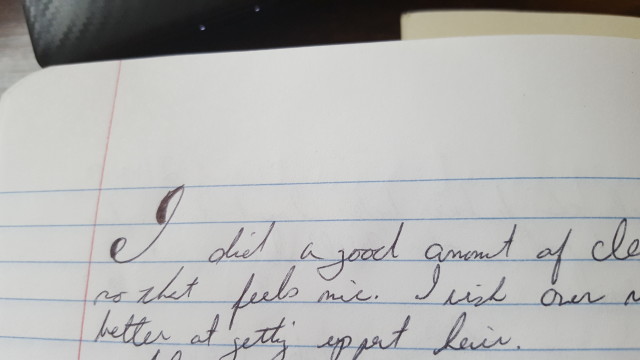 I did a good amount of cle
so that feels nic. I wish over
better at getti